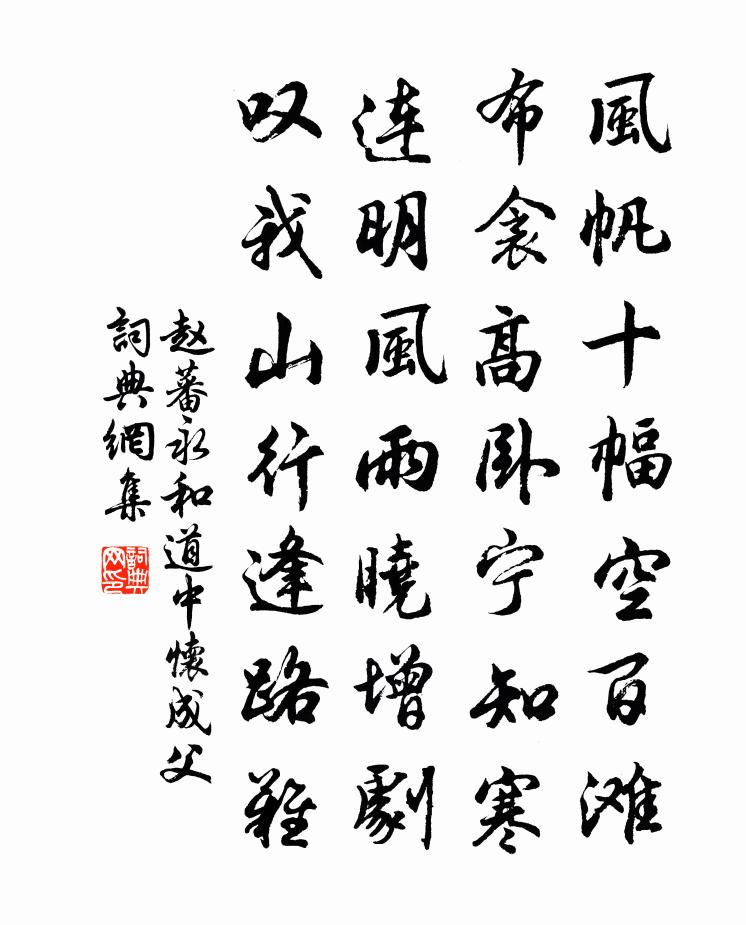 風帆十幅空百滩
布衾高卧宁知寒
连明風雨曉增劇
叹我山行逢路難
赵蕃永和道中懷成父
詞典網集
詞典网印